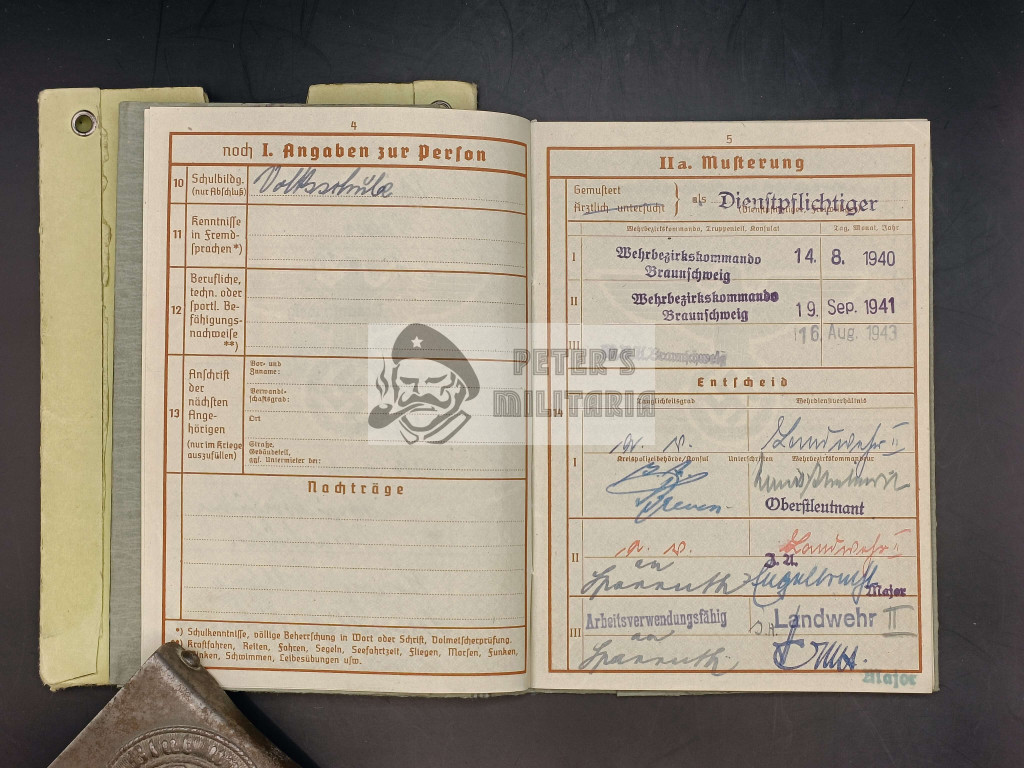 4
noch I. Angaben zur Person
10 Schulbildg. (nur Abschluß) Volksschule
11 Kenntnisse in Fremdsprachen*)
12 Berufliche, techn. oder sportl. Befähigungsnachweise **)
13 Anschrift der nächsten Angehörigen (nur im Kriege auszufüllen)
Vor- und Zuname:
Verwandtschaftsgrad:
Ort
Straße, Gebäudeteil, ggf. Untermieter bei:
Nachträge
*) Schulkenntnisse, völlige Beherrschung in Wort oder Schrift, Dolmetscherprüfung.
**) Kraftfahren, Reiten, Fahren, Segeln, Seefahrtzeit, Fliegen, Morsen, Funken,
Schwimmen, Leibesübungen usw.
5
IIa. Musterung
Gemustert
Ärztlich untersucht
als Dienstpflichtiger
Wehrbezirkskommando, Truppenteil, Konsulat
Tag, Monat, Jahr
I Wehrbezirkskommando Braunschweig 14. 8. 1940
II Wehrbezirkskommando Braunschweig 19. Sep. 1941
III Braunschweig 16. Aug. 1943
Entscheid
14 Tauglichkeitsgrad Wehrdienstverhältnis
I a. v. Landwehr II
Kreispolizeibehörde/Konsul Unterschriften Wehrbezirkskommandeur
Oberstleutnant
II a. v. Landwehr I
Major
III Arbeitsverwendungsfähig Landwehr II
Major
PETER'S
MILITARIA